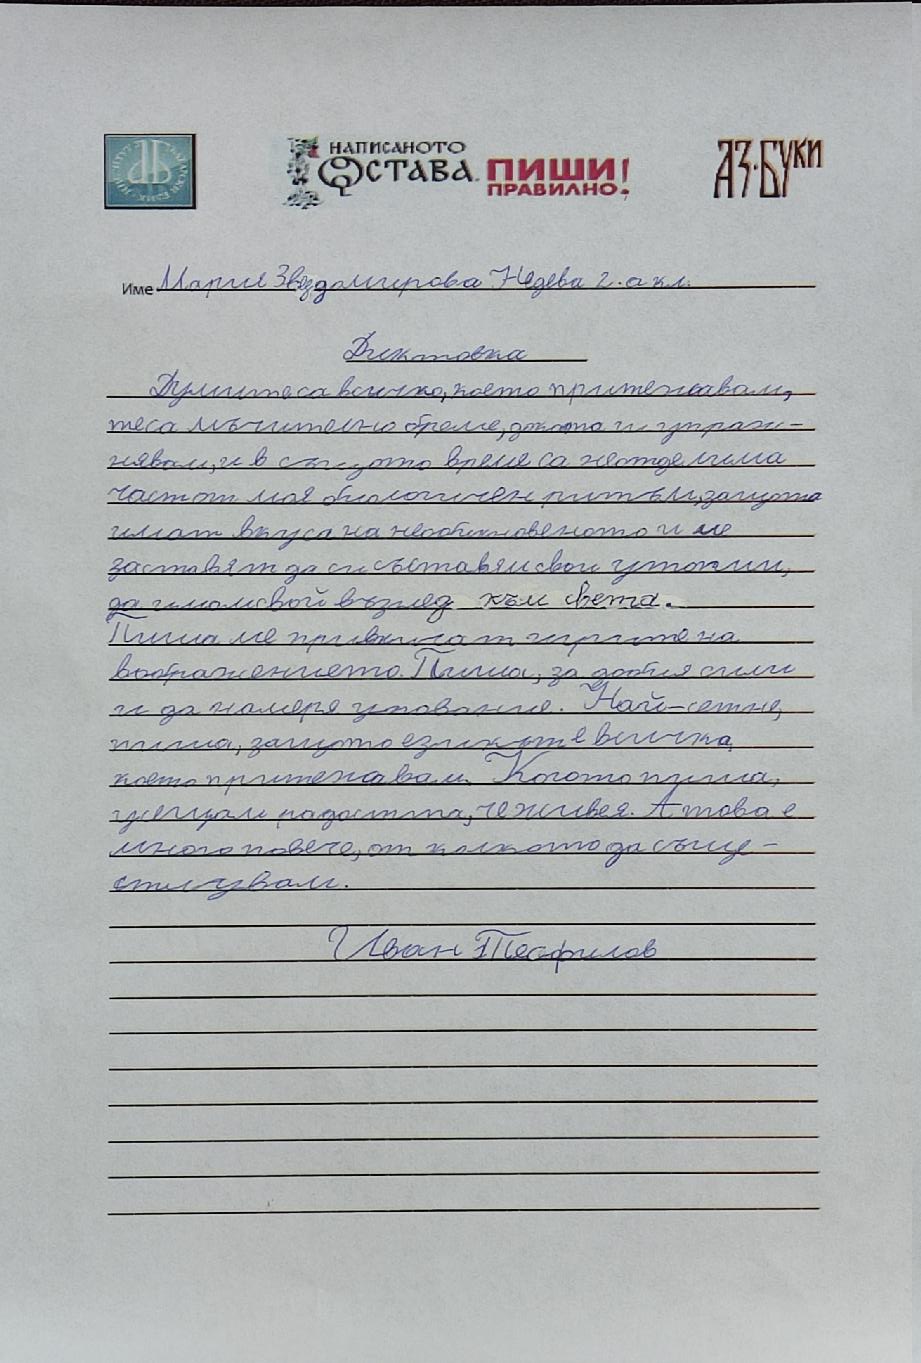 ИНСТИТУТ ЗА БЪЛГАРСКИ ЕЗИК
НАПИСАНОТО ОСТАВА. ПИШИ ПРАВИЛНО! АЗ·БУКИ
Име Мария Звездомирова Недева 2. а кл.
Диктовка
Думите са всичко, което притежавам,
те са мъчително бреме, докато ги упраж-
нявам, и в същото време са неотделима
част от моя биологичен ритъм, защото
имат вкуса на необикновеното и ме
заставят да си съставям свои утопии,
да имам свой възглед към света.
Пиша ме привличат игрите на
въображението. Пиша, за да добия сили
и да намеря упование. Най-сетне,
пиша, защото езикът е всичко,
което притежавам. Когато пиша,
усещам радостта, че живея. А това е
много повече, от колкото да съще-
ствувам.
Иван Теофилов